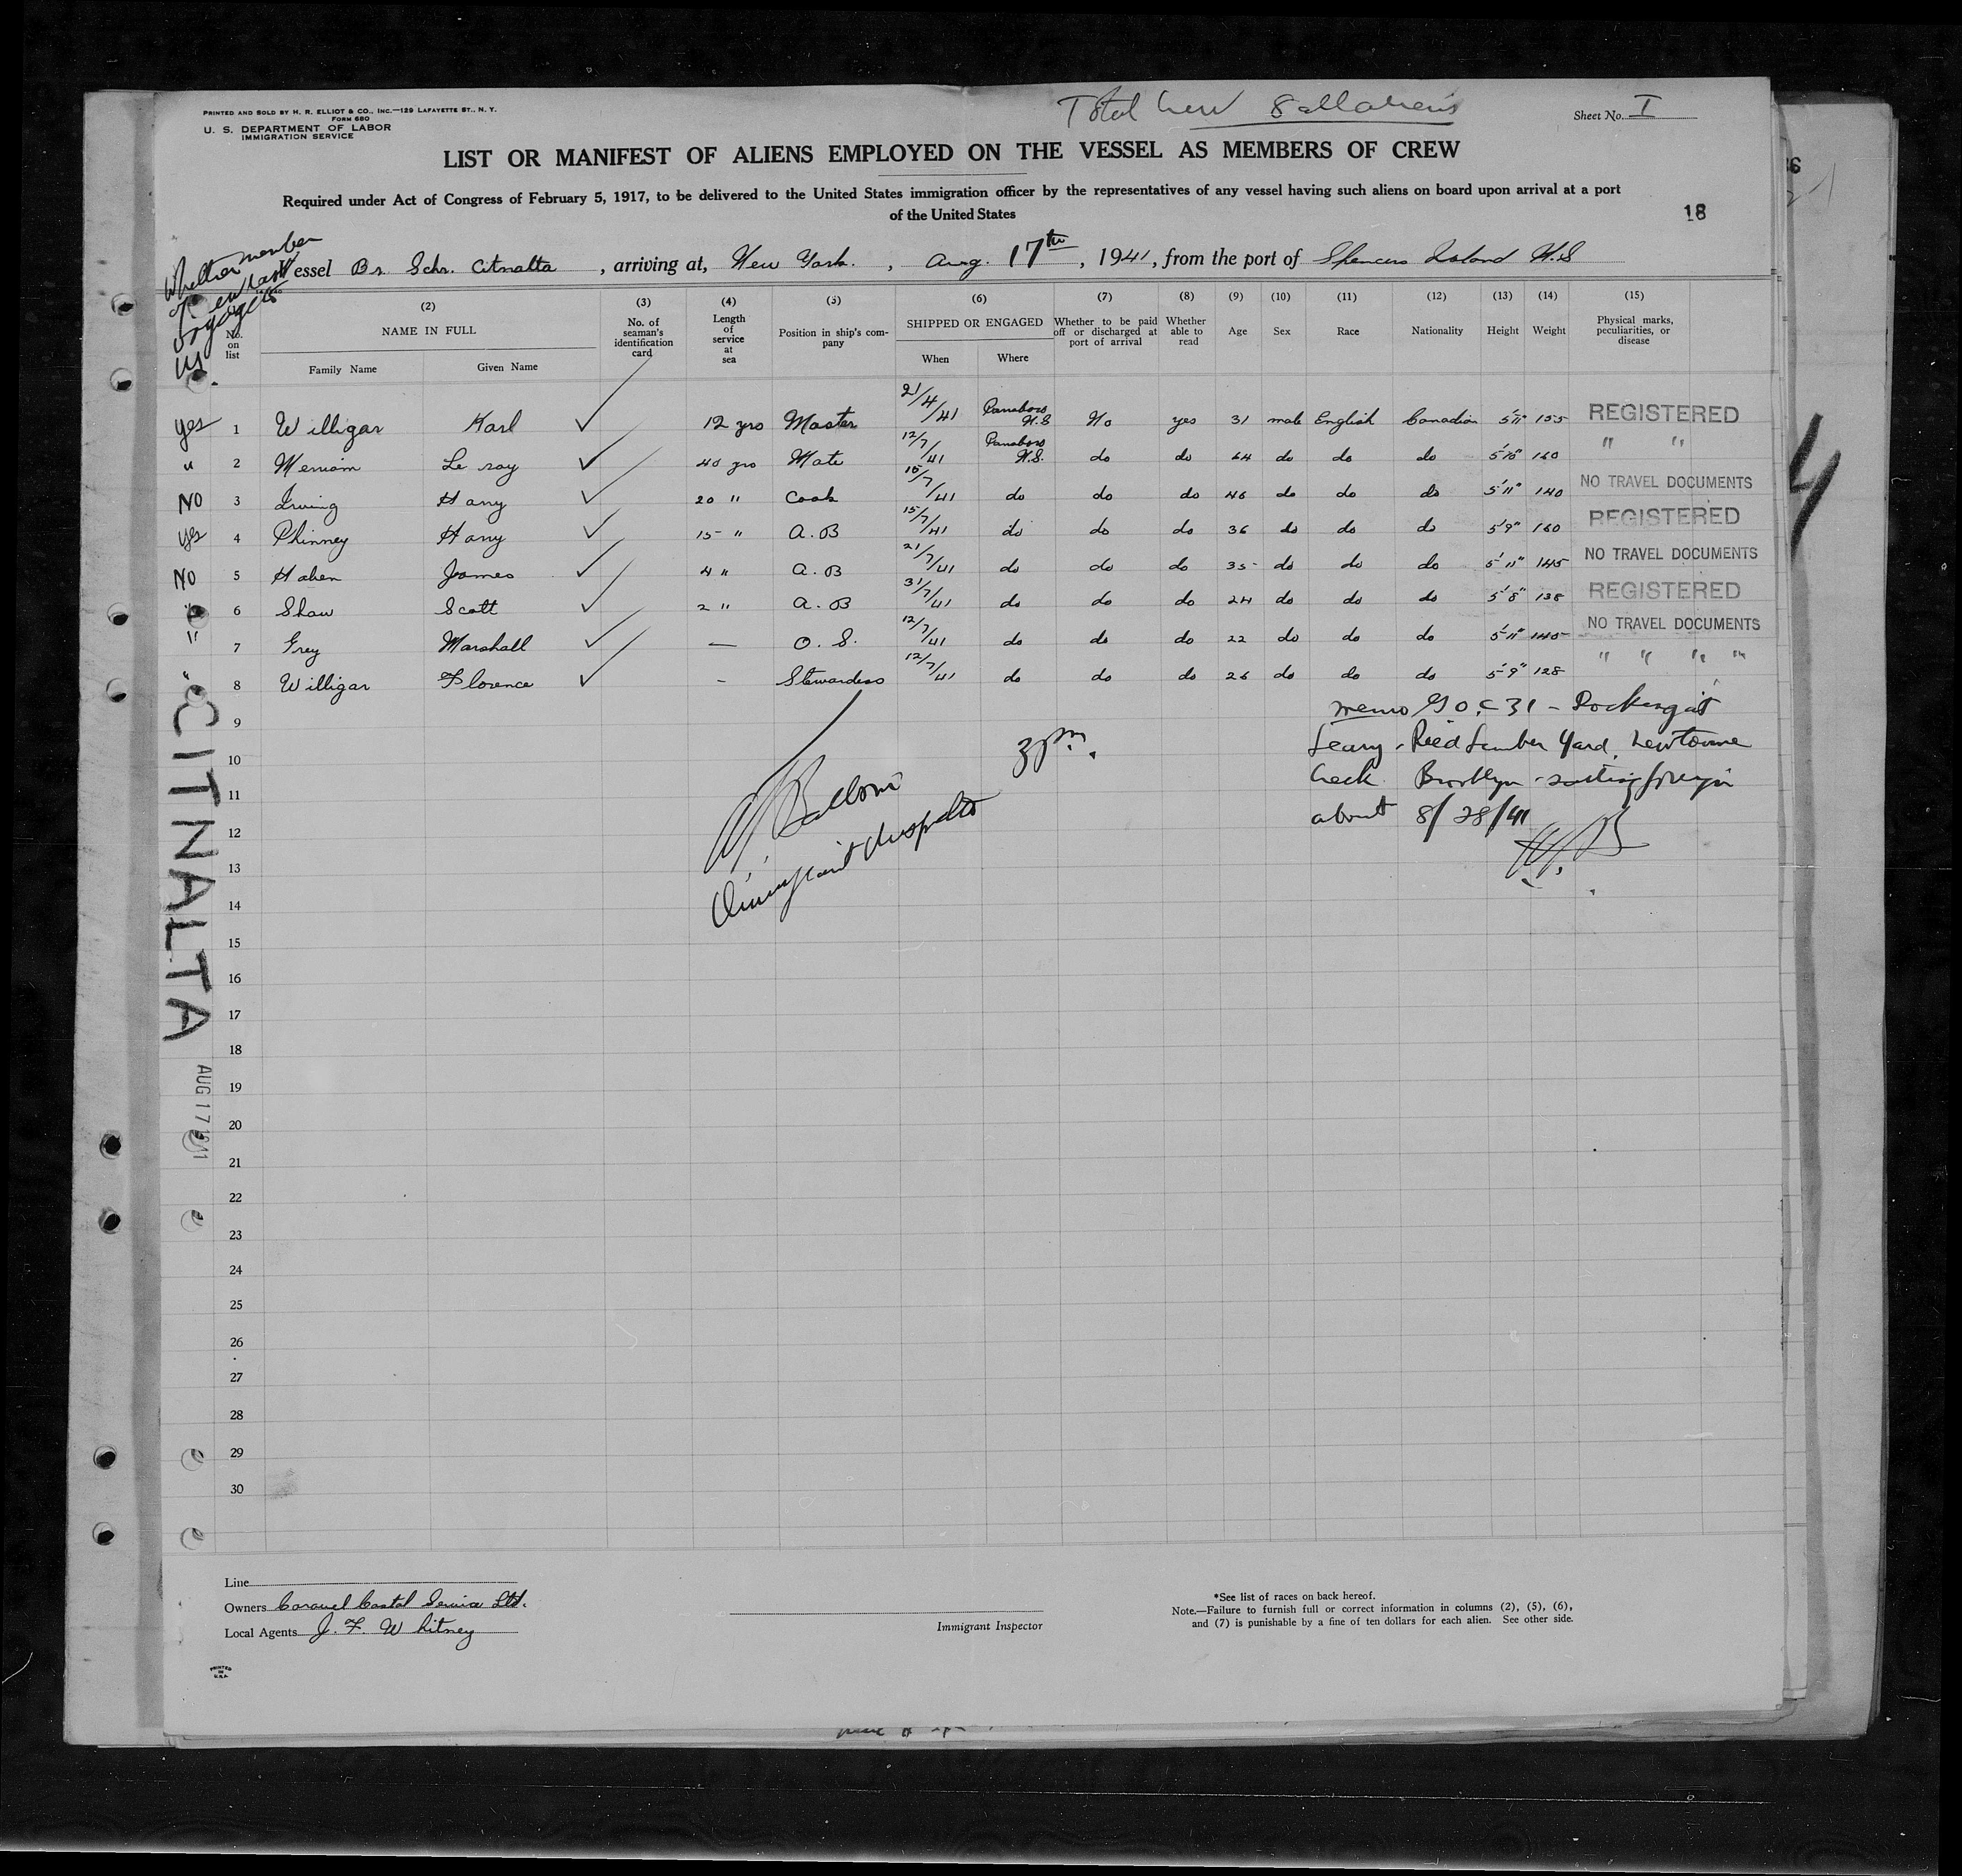 PRINTED AND SOLD BY H. R. ELLIOT & CO., INC.—129 LAFAYETTE ST., N. Y.
FORM 680
U. S. DEPARTMENT OF LABOR
IMMIGRATION SERVICE
Total Crew 8 all aliens
Sheet No. I
LIST OR MANIFEST OF ALIENS EMPLOYED ON THE VESSEL AS MEMBERS OF CREW
Required under Act of Congress of February 5, 1917, to be delivered to the United States immigration officer by the representatives of any vessel having such aliens on board upon arrival at a port
of the United States
18
Whether member
of crew last
voyage to
US.
Vessel Br. Schr. Citnalta, arriving at, New York., Aug. 17th, 1941, from the port of Spencers Island N.S
No. on list
(2) NAME IN FULL
Family Name Given Name
(3) No. of seaman's identification card
(4) Length of service at sea
(5) Position in ship's company
(6) SHIPPED OR ENGAGED
When Where
(7) Whether to be paid off or discharged at port of arrival
(8) Whether able to read
(9) Age
(10) Sex
(11) Race
(12) Nationality
(13) Height
(14) Weight
(15) Physical marks, peculiarities, or disease
yes 1 Willigar Karl 12 yrs Master 21/4/41 Parrsboro N.S No yes 31 male English Canadian 5'11" 155 REGISTERED
" 2 Merriam Le roy 40 yrs Mate 12/7/41 Parrsboro N.S. do do 64 do do do 5'10" 160 " "
NO 3 Irving Harry 20 " Cook 15/7/41 do do do 46 do do do 5'11" 140 NO TRAVEL DOCUMENTS
yes 4 Phinney Harry 15 " A.B 15/7/41 do do do 36 do do do 5'9" 160 REGISTERED
NO 5 James 4 " A.B 21/7/41 do do do 35 do do do 5'11" 145 NO TRAVEL DOCUMENTS
6 Shaw Scott 2 " A.B 31/7/41 do do do 24 do do do 5'8" 138 REGISTERED
" 7 Grey Marshall — O.S. 12/7/41 do do do 22 do do do 5'11" 140 NO TRAVEL DOCUMENTS
" 8 Willigar Florence - Stewardess 12/7/41 do do do 26 do do do 5'9" 128 " " " "
9
10
11
12
13
14
15
16
17
18
19
20
21
22
23
24
25
26
27
28
29
30
memo G.O. C 31 - Docking at
Leary - Reed Lumber Yard, Newtowne
Creek Brooklyn - sailing foreign
about 8/28/41
3 pm.
Immigrant Inspector
CITNALTA
AUG 17 1941
Line
Owners Caravel Costal Service Ltd.
Local Agents J. F. Whitney
Immigrant Inspector
*See list of races on back hereof.
Note.—Failure to furnish full or correct information in columns (2), (5), (6),
and (7) is punishable by a fine of ten dollars for each alien. See other side.
PRINTED
IN
U.S.A.